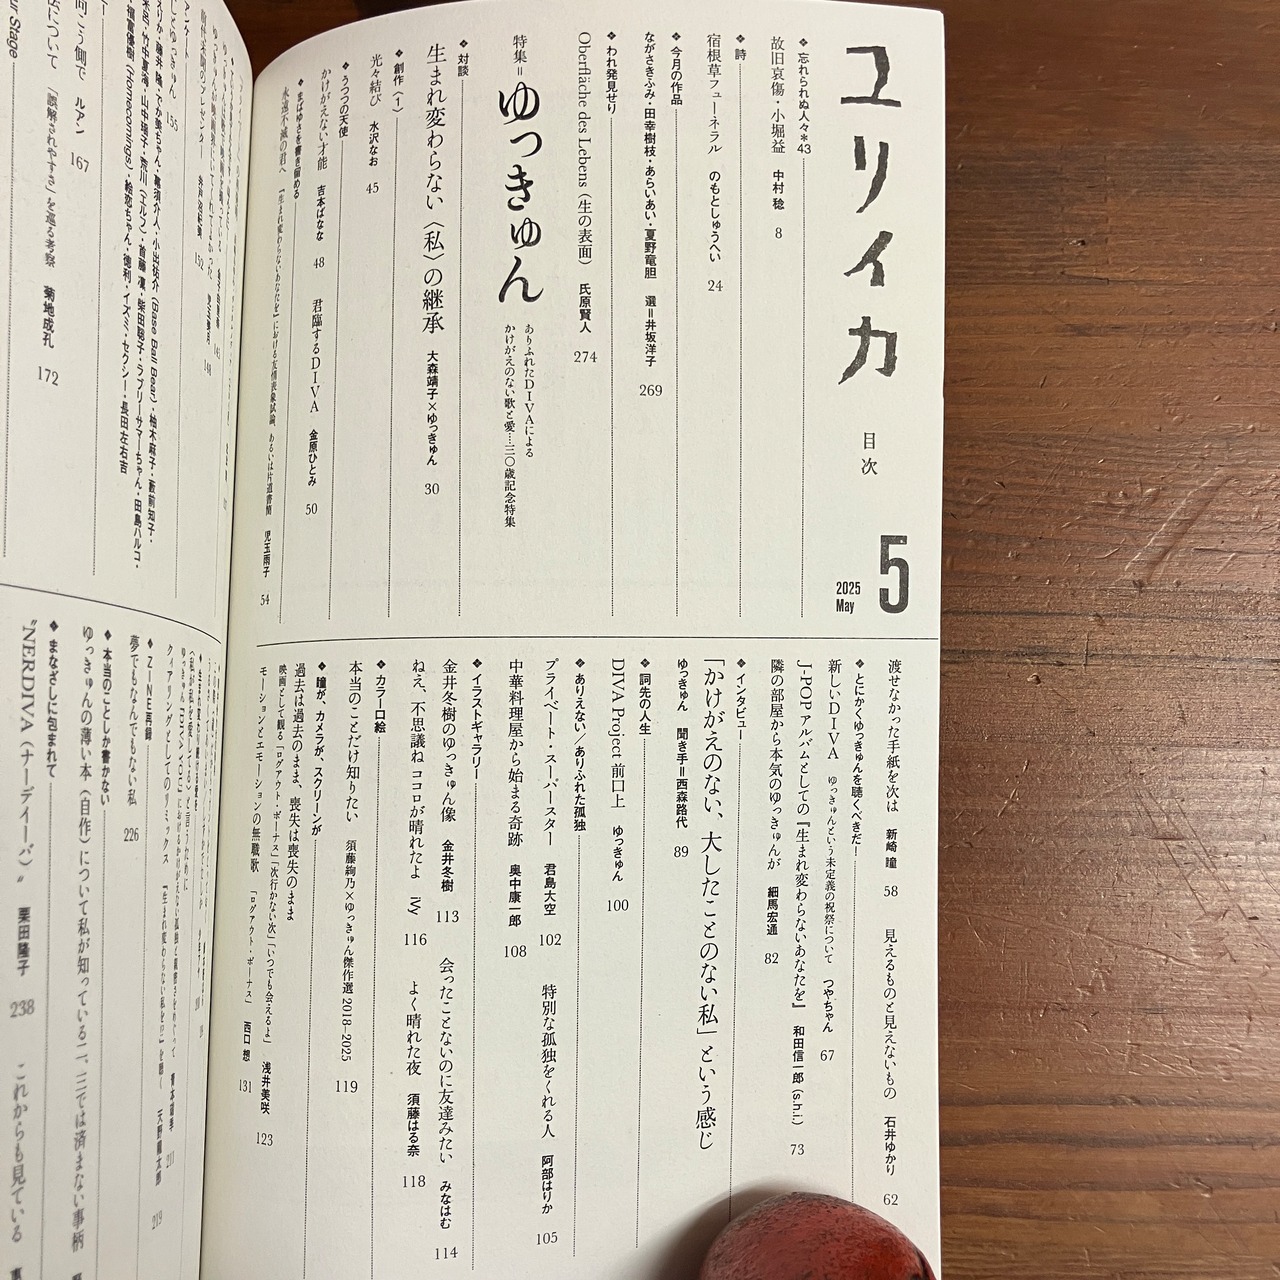 ユリイカ
目次
5
2025
May
❖忘れられぬ人々*43
故旧哀傷・小堀益　中村稔　8
❖詩
宿根草フューネラル　のもとしゅうへい　24
❖今月の作品
ながさきふみ・田幸樹枝・あらいあい・夏野竜胆　選＝井坂洋子　269
❖われ発見せり
Oberfläche des Lebens（生の表面）　氏原賢人　274
特集＝ゆっきゅん
ありふれたDIVAによる
かけがえのない歌と愛…三〇歳記念特集
❖対談
生まれ変わらない〈私〉の継承　大森靖子×ゆっきゅん　30
❖創作〈1〉
光々結び　水沢なお　45
❖うつつの天使
かけがえない才能　吉本ばなな　48　君臨するDIVA　金原ひとみ　50
❖まばゆさを書き留める
永遠不滅の君へ　『生まれ変わらないあなたを』における友情表象試論、あるいは片道書簡　児玉雨子　54
渡せなかった手紙を次は　新崎瞳　58　見えるものと見えないもの　石井ゆかり　62
❖とにかくゆっきゅんを聴くべきだ！
新しいDIVA　ゆっきゅんという未定義の祝祭について　つやちゃん　67
J-POPアルバムとしての『生まれ変わらないあなたを』　和田信一郎（s.h.i.）　73
隣の部屋から本気のゆっきゅんが　細馬宏通　82
❖インタビュー
「かけがえのない、大したことのない私」という感じ
ゆっきゅん　聞き手＝西森路代　89
❖詞先の人生
DIVA Project 前口上　ゆっきゅん　100
❖ありえない／ありふれた孤独
プライベート・スーパースター　君島大空　102　特別な孤独をくれる人　阿部はりか　105
中華料理屋から始まる奇跡　奥中康一郎　108
❖イラストギャラリー
金井冬樹のゆっきゅん像　金井冬樹　113　会ったことないのに友達みたい　みなはむ　114
ねえ、不思議ね ココロが晴れたよ　ivy　116　よく晴れた夜　須藤はる奈　118
❖カラー口絵
本当のことだけ知りたい　須藤絢乃×ゆっきゅん傑作選 2018–2025　119
❖瞳が、カメラが、スクリーンが
過去は過去のまま、喪失は喪失のまま
映画として観る「ログアウト・ボーナス」「次行かない次」「いつでも会えるよ」　浅井美咲　123
モーションとエモーションの無職歌　「ログアウト・ボーナス」　西口想　131
向こう側で　ルアン　167
について　「誤解されやすさ」を巡る考察　菊地成孔　172
ur Stage
❖ZINE再録
夢でもなんでもない私　226
❖本当のことしか書かない
ゆっきゅんの薄い本（自作）について私が知っている二、三では済まない事柄
❖まなざしに包まれて
"NERDIVA（ナーディーバ）"　栗田隆子　238　これからも見ている